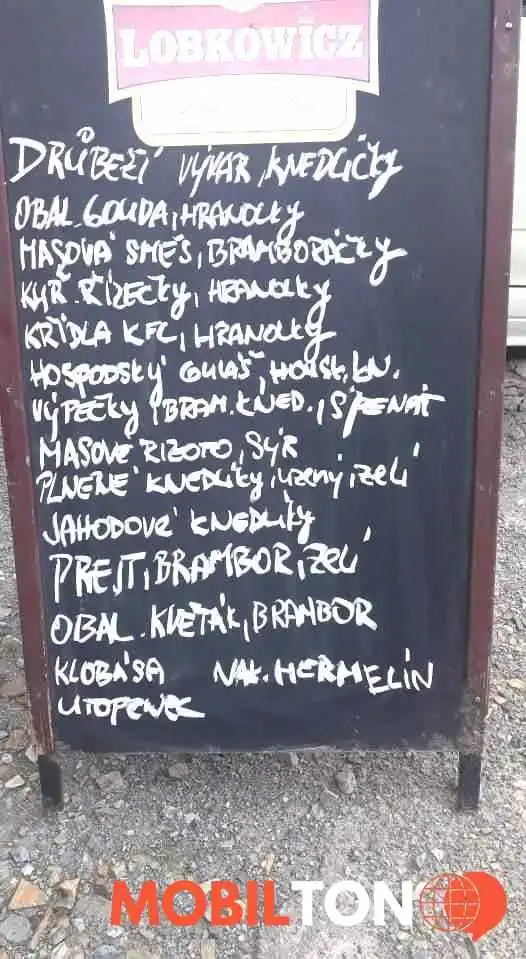 LOBKOWICZ
DRŮBEŽÍ VÝVAR, KNEDLÍČKY
OBAL. GOUDA, HRANOLKY
MASOVÁ SMĚS, BRAMBORÁČKY
KUŘ. ŘÍZEČKY, HRANOLKY
KŘÍDLA KFC, HRANOLKY
HOSPODSKÝ GULÁŠ, HOUSK. KN.
VÝPEČKY, BRAM. KNED., ŠPENÁT
MASOVÉ RIZOTO, SÝR
PLNĚNÉ KNEDLÍKY, UZENÝ, ZELÍ
JAHODOVÉ KNEDLÍKY
PREJT, BRAMBOR, ZELÍ
OBAL. KVĚTÁK, BRAMBOR
KLOBÁSA NAK. HERMELÍN
UTOPENEC
MOBILTON